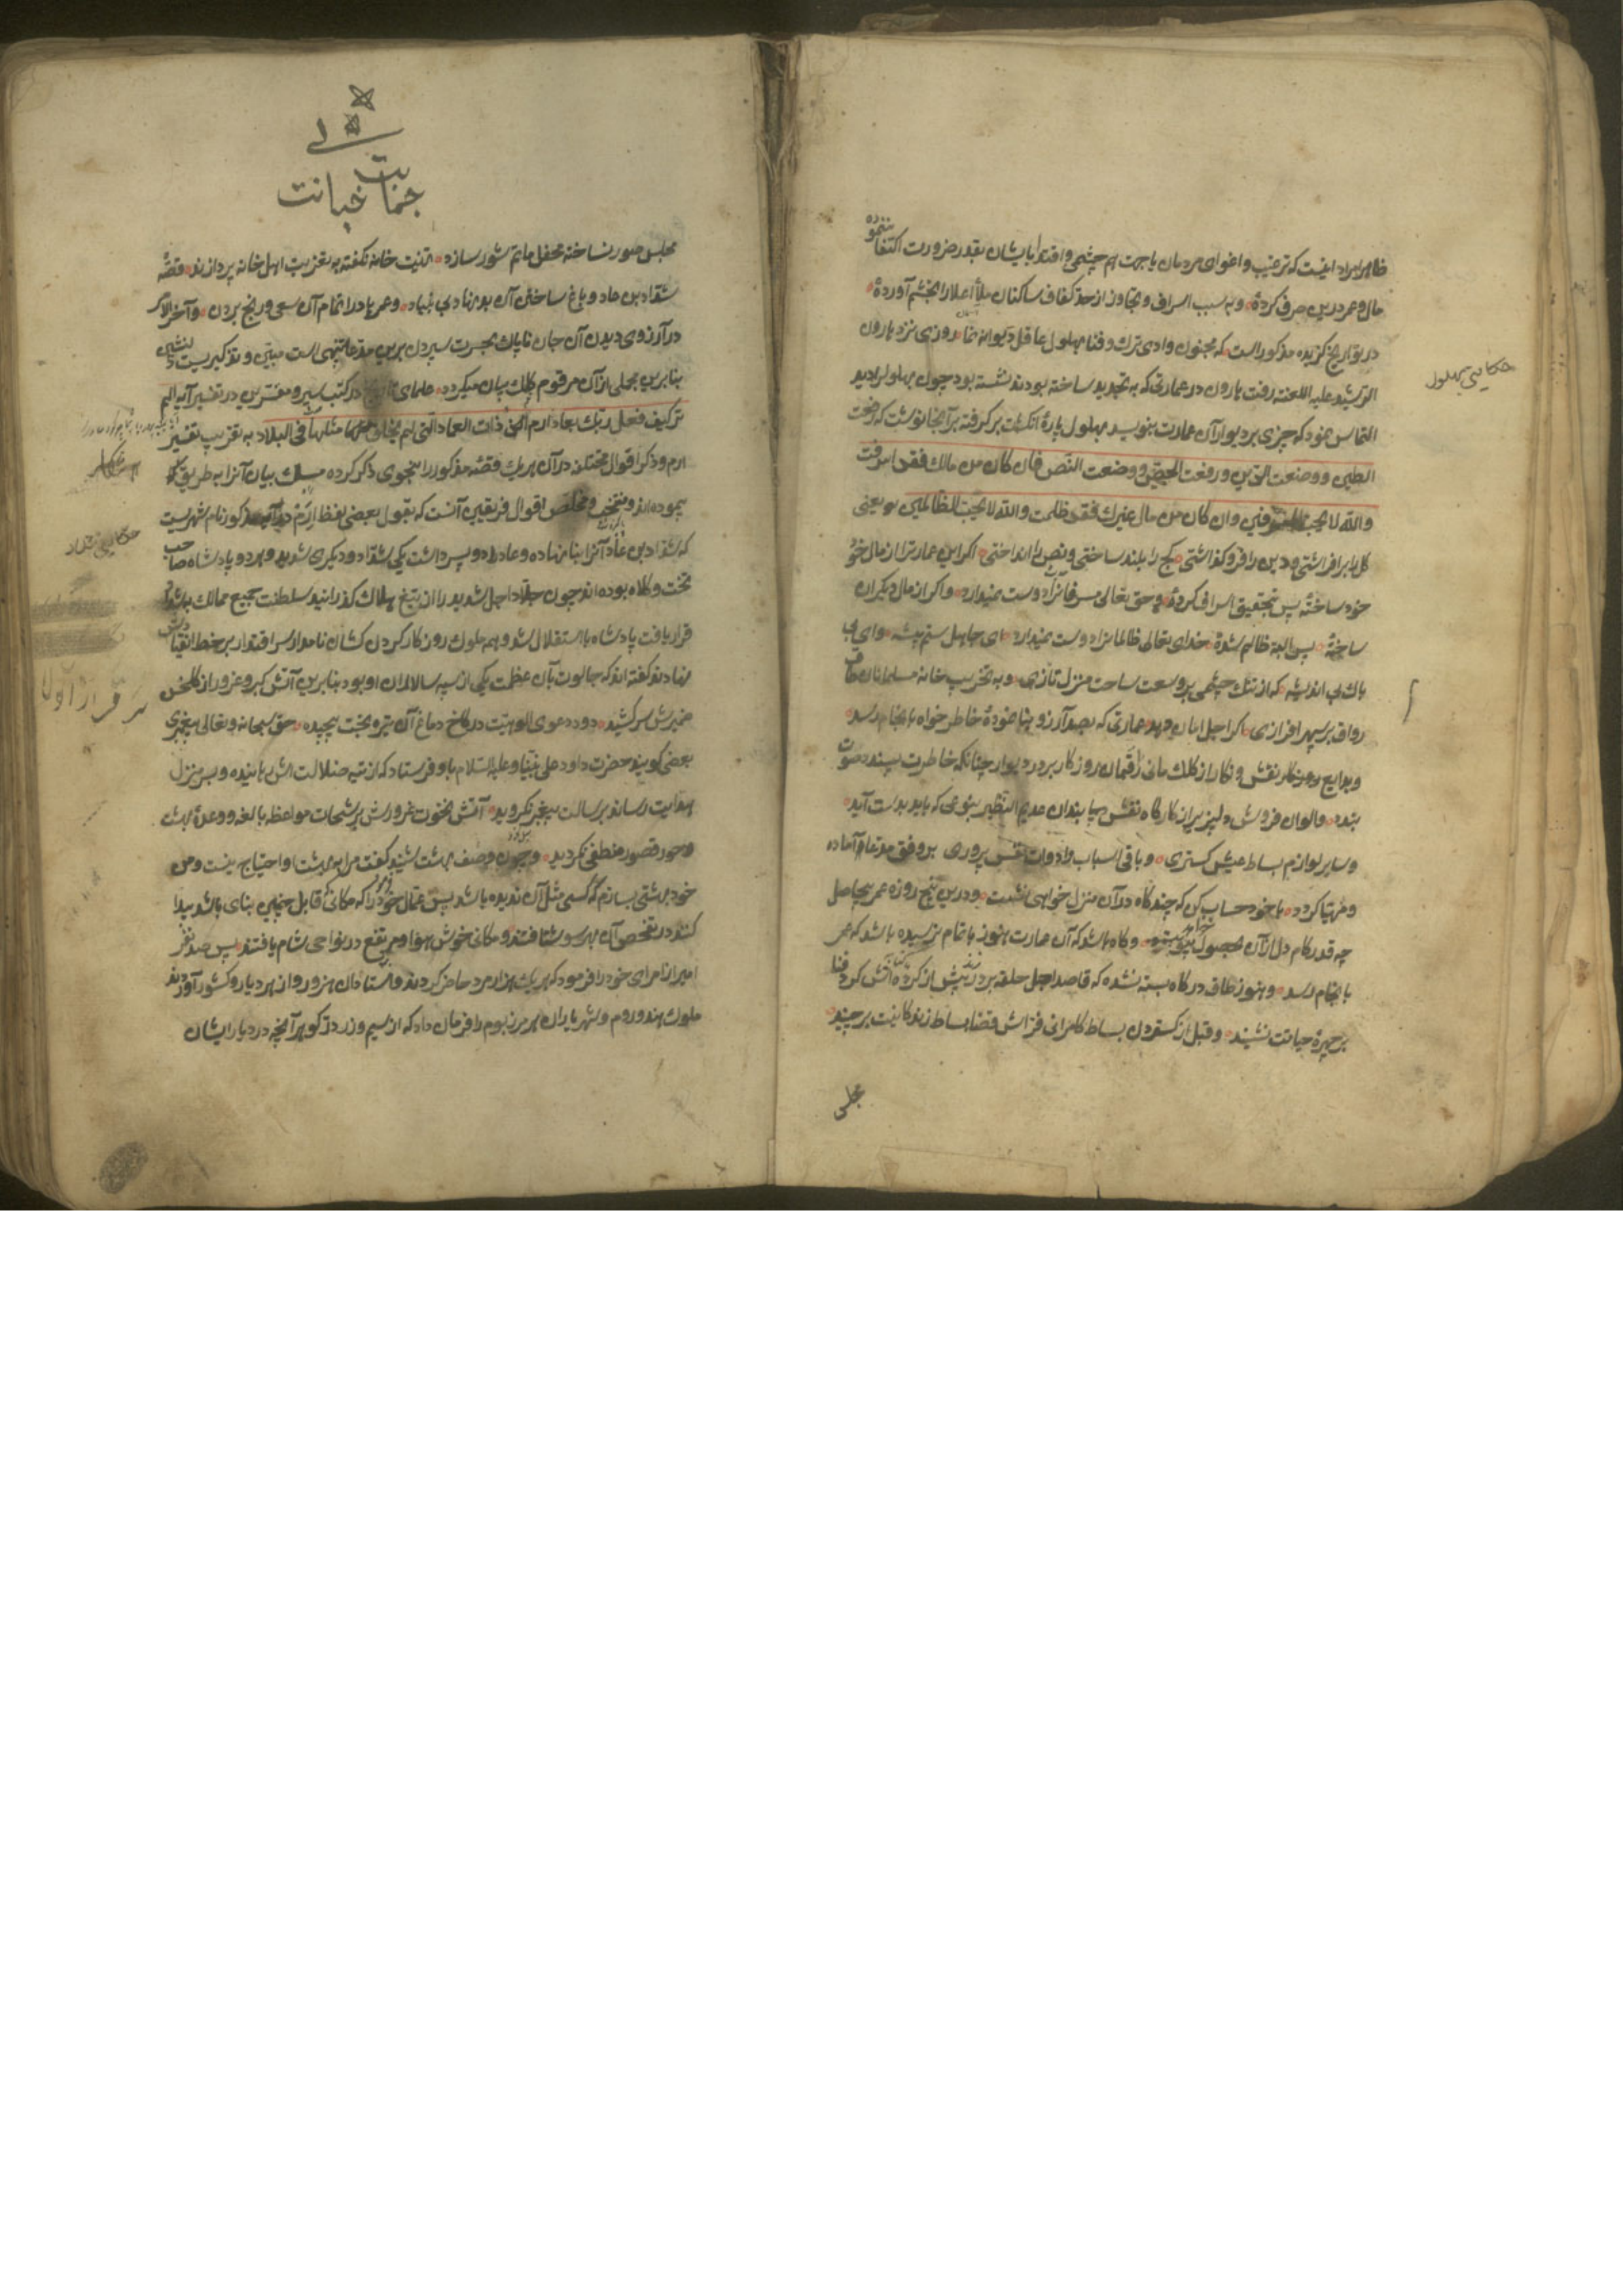 ظاهر مراد اینست که ترغیب و اغوای مردمان یا جهت هم چشمی و اقتدا بایشان بقدر ضرورت اکتفا ننموده
مال و عمر درین صرف کردهٔ و به سبب اسراف و تجاوز از حد کفاف ساکنان ملأ اعلا را بخشم آوردهٔ
در تواریخ گزیده مذکور است که مجنون وادی ترک و فنا بهلول عاقل دیوانه نما روزی نزد هارون
الرشید علیه اللعنه رفت هارون در عمارتی که به تجدید ساخته بودند نشسته بود چون بهلول را دید
التماس نمود که چیزی بر دیوار آن عمارت بنویسد بهلول پارهٔ انگشت بر گرفته بر آنجا نوشت که رفعت
الطین و وضعت الدین و رفعت الجص و وضعت النص فان کان من مالك فقد اسرفت
والله لا یحب المسرفین وان کان من مال غیرك فقد ظلمت والله لا یحب الظالمین یعنی
گل را بر افراشتی و دین را فرو گذاشتی گچ را بلند ساختی و نص را انداختی اگر این عمارت را از مال خود
خود ساختهٔ پس بتحقیق اسراف کردهٔ و حق تعالی مسرفانرا دوست نمیدارد و اگر از مال دیگران
ساختهٔ پس البته ظالم شدهٔ خدای تعالی ظالمانرا دوست نمیدارد ای جاهل ستم پیشه وای بی
باک بی اندیشه که از تنک چشمی بر وسعت ساحت منزل تازی و به تخریب خانه مسلمانان
رواق بر سپهر افرازی اگر اجل امان دهد و عمارتی که بصد آرزو بنا نمودهٔ خاطر خواه بانجام رسد
و بدایع نقش و نگار از کلک مانی رقمان روزگار بر در و دیوار چنانکه خاطرت پسندد صورت
بندد و الوان فروش دلپزیر از کارگاه نقش بندان عدیم النظیر بنوعی که باید بدست آید
و سایر لوازم بساط عیش گستری و باقی اسباب و ادوات نفس پروری بر وفق مدعا آماده
و مهیا گردد با خود حساب کن که چند گاه در آن منزل خواهی نشست و درین پنج روزه عمر بیحاصل
چه قدر کام دل از آن بحصول و گاه باشد که آن عمارت هنوز باتمام نرسیده باشد که عمر
بانجام رسد و هنوز طاق درگاه بسته نشده که قاصد اجل حلقه بر در زند پیش از گرد فنا
بر چهرهٔ حیاتت نشیند و قبل از گستردن بساط کامرانی فراش قضا بساط زندگانیت برچیند
مجلس
حکایتی بهلول
خیانت
مجلس سور نساخته محفل ماتم شور سازد تهنیت خانه نگفته به تعزیت اهل خانه پردازند قصهٔ
شداد بن عاد و باغ ساختن آن بد نهاد بی بنیاد و عمرها در اتمام آن سعی و رنج بردن و آخر الامر
در آرزوی دیدن آن جان ناپاک بحسرت سپردن برین مدعا تنبیهی است مبین و تذکیریست دلنشین
بنابرین مجملی از آن مرقوم کلک بیان میگردد علمای تاریخ در کتب سیر و مفسرین در تفسیر آیه الم
تر کیف فعل ربك بعاد ارم ذات العماد التی لم یخلق مثلها فی البلاد به تقریب تفسیر
ارم و ذکر اقوال مختلفه در آن هر یک قصه مذکور را بنحوی ذکر کرده مسلک بیان آنرا به طریقی
پیموده اند و منتخب و ملخص اقوال فریقین آنست که بقول بعضی لفظ ارم در آیه مذکور نام شهریست
که شداد بن عاد آنرا بنا نهاده و عاد را دو پسر داشت یکی شداد و دیگری شدید و هر دو پادشاه صاحب
تخت و کلاه بوده اند چون جلاد اجل شدید را از تیغ هلاک گذرانید سلطنت جمیع ممالک بشداد
قرار یافت پادشاه با استقلال شد و همه ملوک روزگار گردن کشان نامدار سر اقتدار بر خط انقیادش
نهادند گفته اند که جالوت بآن عظمت یکی از سپه سالاران او بود بنابرین آتش کبر و غرور از گلخن
ضمیرش سر کشید و دود دعوی الوهیت در کاخ دماغ آن تیره بخت پیچیده حق سبحانه و تعالی پیغمبری
بعضی گویند حضرت داود علی نبینا و علیه السلام باو فرستاد که از تیه ضلالت اش رهانیده و بسر منزل
هدایت رساند برسالت پیغمبر نگروید آتش نخوت غرورش برشحات مواعظه بالغه و وعدهٔ بهشت
و حور و قصور منطفی نگردید و چون وصف بهشت شنید گفت مرا به بهشت او احتیاج نیست و من
خود بهشتی بسازم که کسی مثل آن ندیده باشد پس عمال خود را که مکانی قابل چنین بنای باشد پیدا
کنند در تفحص آن بهر سو شتافتند و مکانی خوش هوا و مرتفع در نواحی شام یافتند پس صد نفر
امیر از امرای خود را فرمود که هر یک هزار مرد حاضر کردند و استادان هنرور از هر دیار و کشور آوردند
ملوک هند و روم و شهریاران هر مرز بوم را فرمان داد که از سیم و زر و در و گوهر آنچه در دیار ایشان
حکایتی شداد